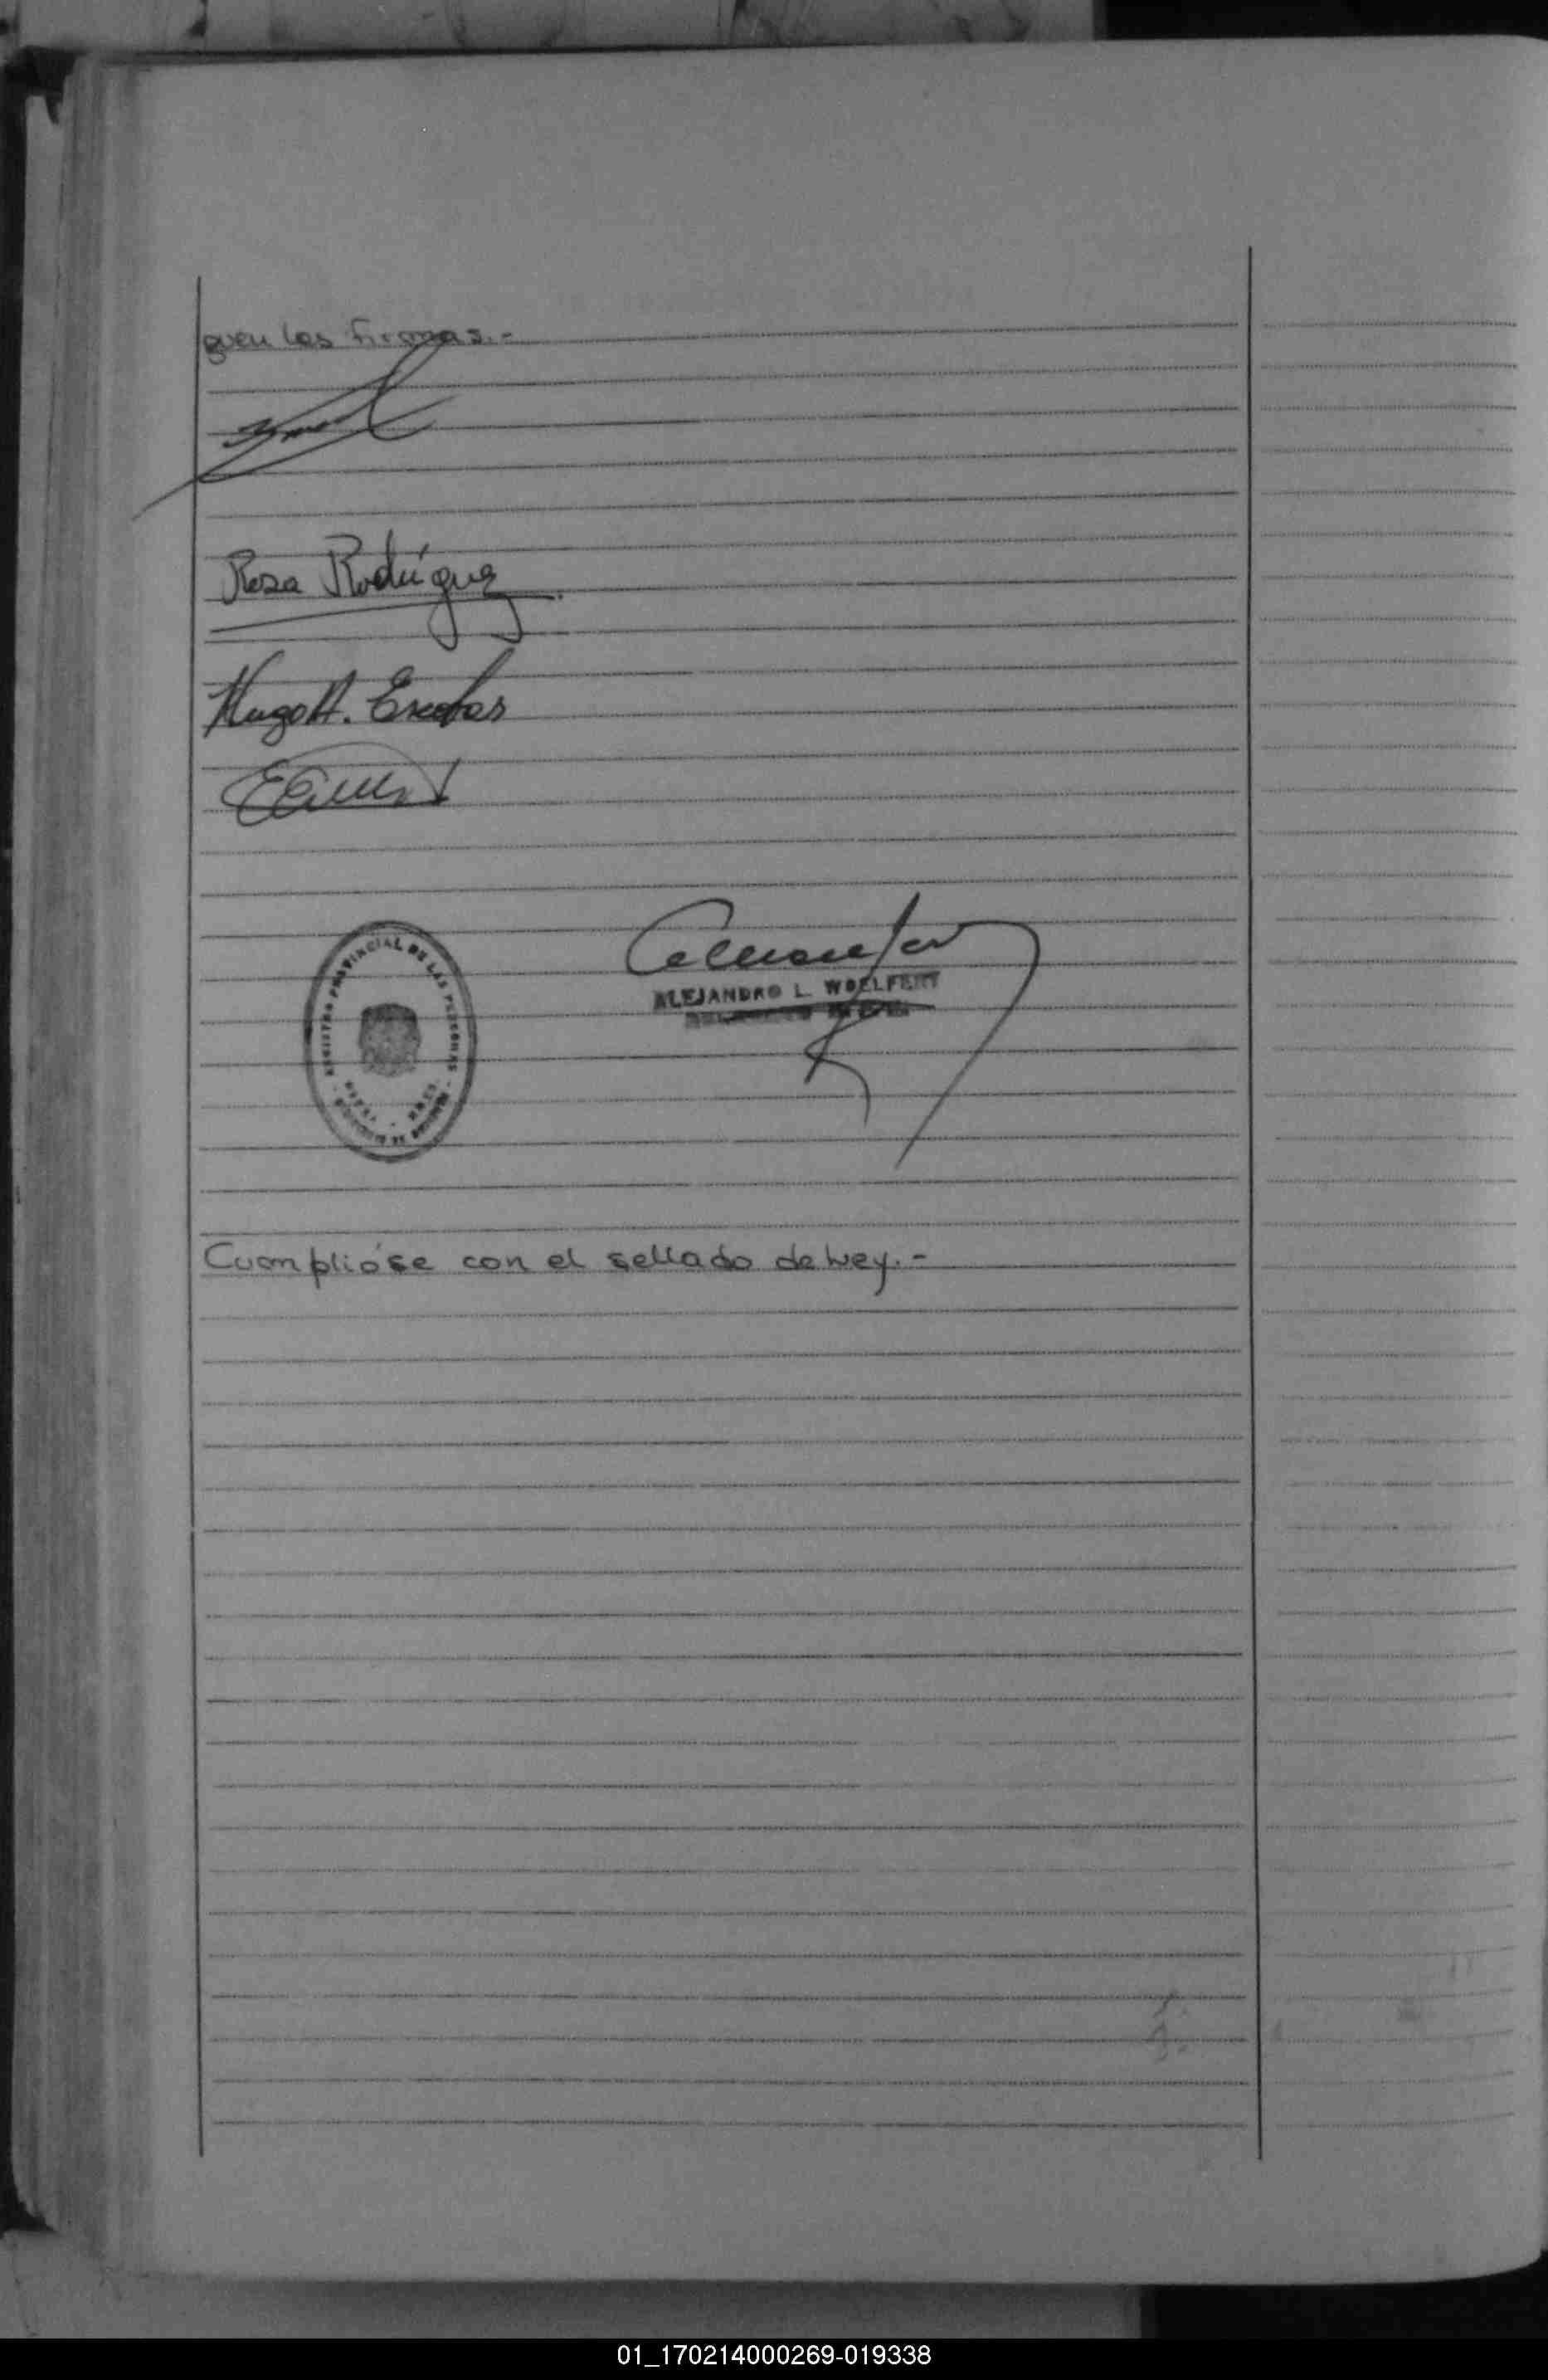 guen las firmas.-
Rosa Rodríguez
Hugo A. Escobar
REGISTRO PROVINCIAL DE LAS PERSONAS
ALEJANDRO L. WOELFERT
Cumplióse con el sellado de Ley.-
01_170214000269-019338